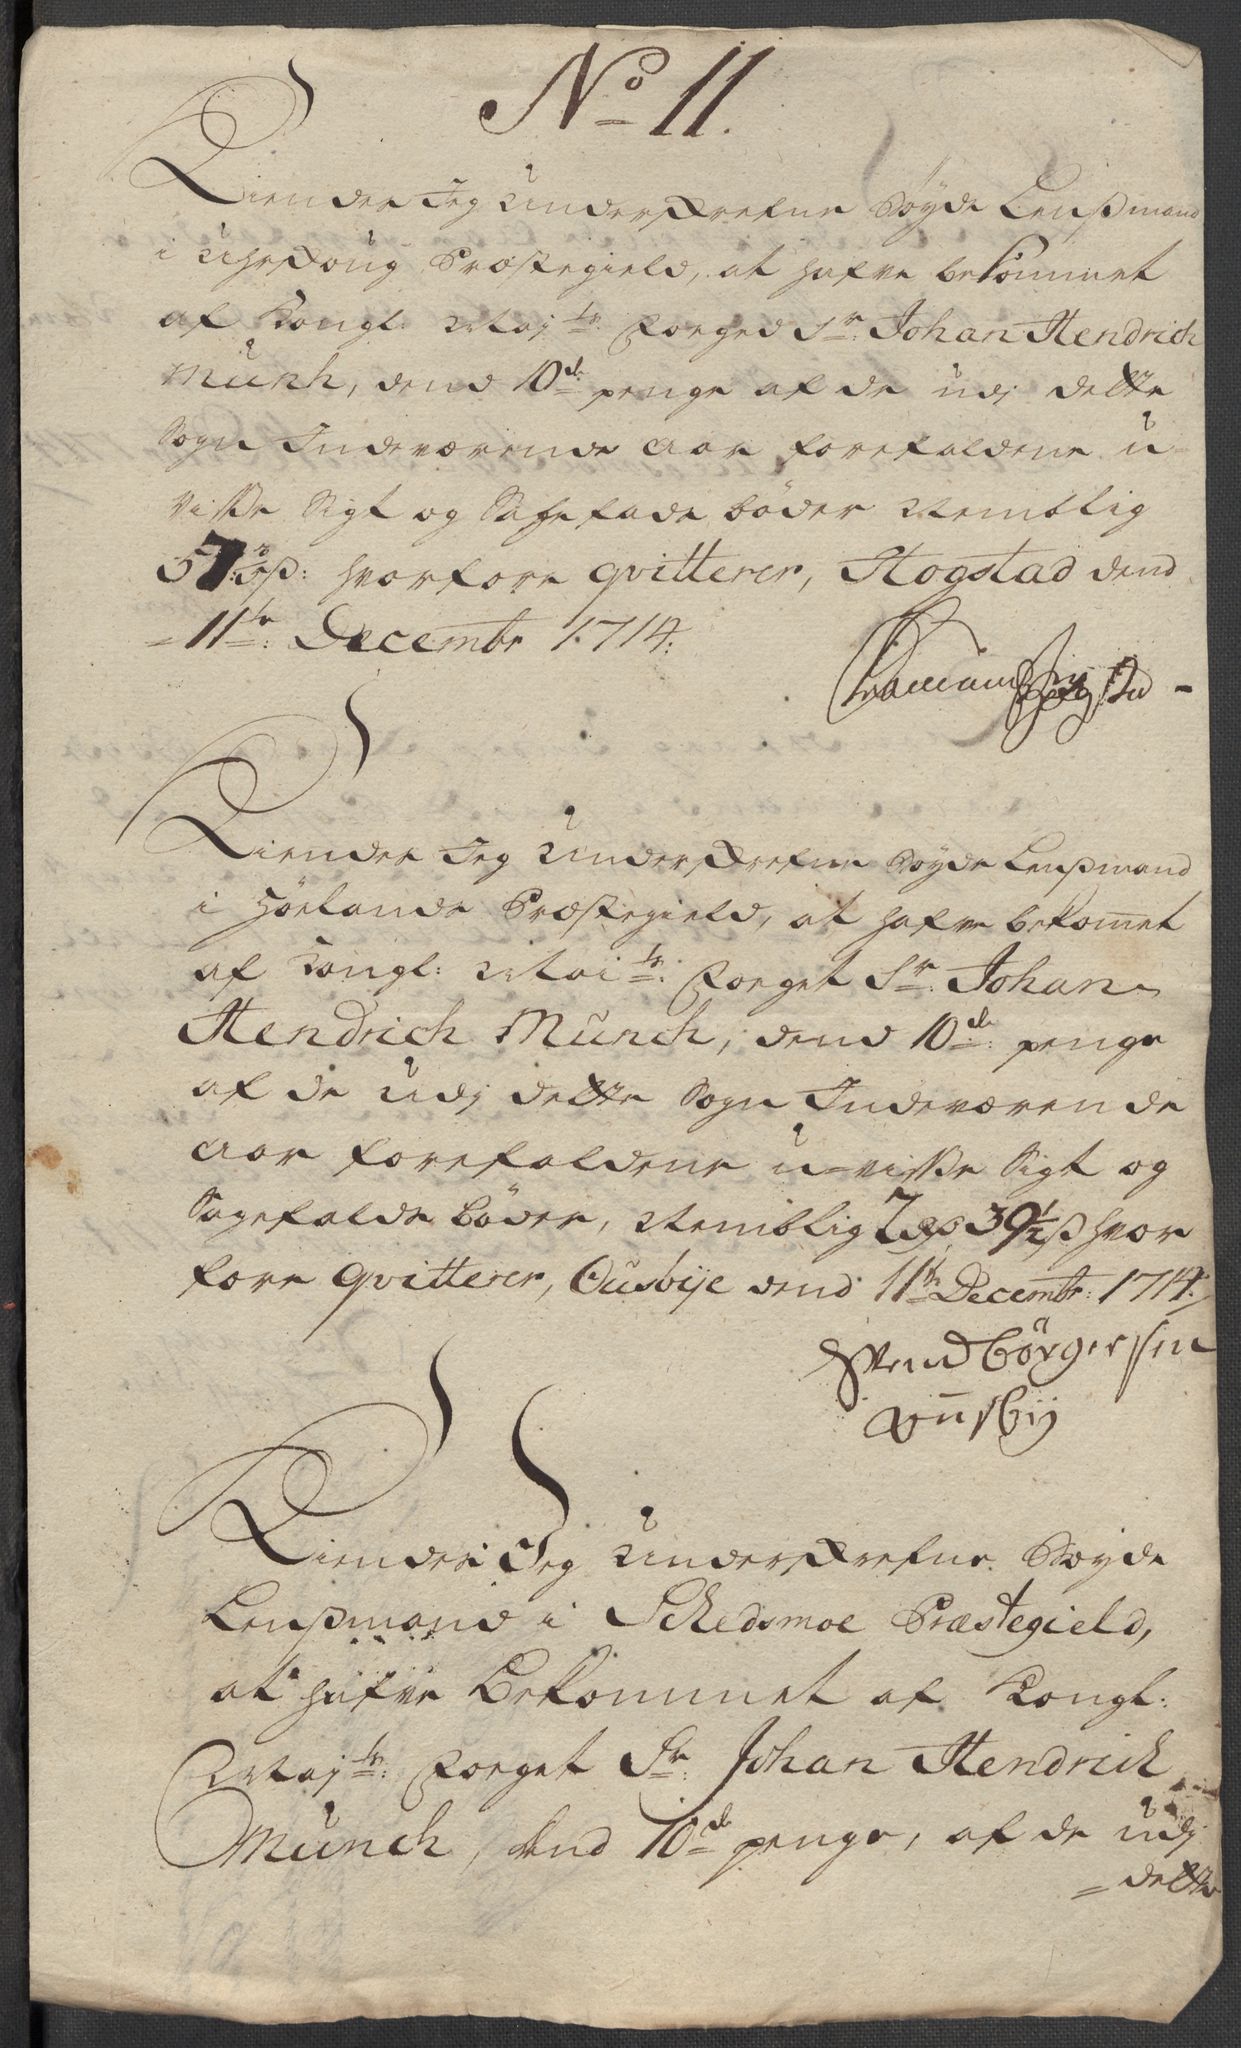 No 11.
Kiender Jeg Underskrefne Böyde Lensmand
i Uhrskoug Præstegield, at hafve bekommet
af Kongl: Maj ts: Foeged Sr: Johan Hendrich
Münch, dend 10de penge af de udj dette
Sogn Indeværende Aar forefaldene u-
visse Sigt og Sagefalds böder Nemblig
hvorfore qvitterer, Hogstad dend
11te: Decembr 1714:
Kiender Jeg Underskrefne Böyde Lensmand
i Höelands Præstegield, at hafve bekomet
af Kongl: Mai ts: Foeget Sr: Johan
Hendrich Münch, dend 10de: penge
af de Udj dette Sogn Indeværende
Aar forefaldene u-visse Sigt og
Sagefalds Böder, Nemblig 7 rd 39½ ß hvor
fore qvitterer, Ousbÿe dend 11te Decembr: 1714:
Svend Börgersen
ousbÿ
Kiender Jeg Underskrefne Böyde
Lensmand i Schedsmoe Præstegield,
at hafve Bekommet af Kongl:
Maj ts: Foeget Sr: Johan Hendrich
Münch, dend 10de penge, af de udj
= dette